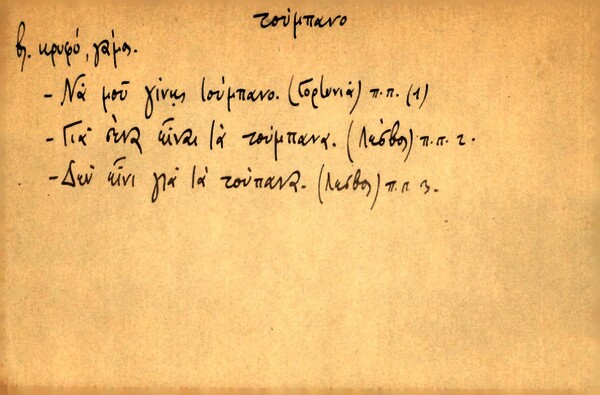 τούμπανο
βλ. κρυφό, γάμος.
- Νά μοῦ γίνῃς τούμπανο. (Γορτυνία) π.π. (1)
- Γιά σένα εἶναι τά τούμπανα. (Λέσβος) π.π. 2.
- Δέν εἶνι γιά τά τούπανα. (Λέσβος) π.π 3.